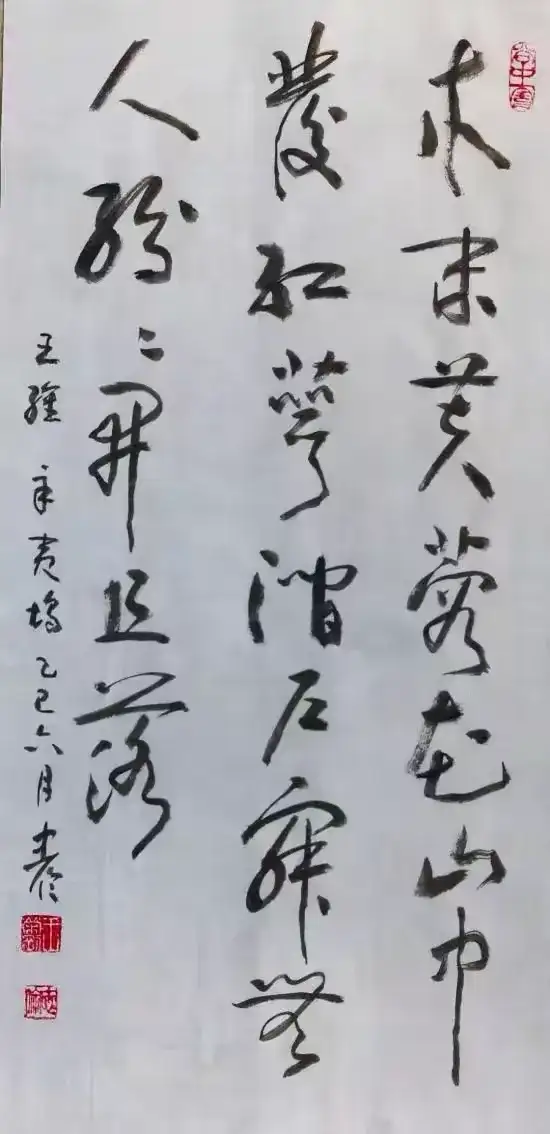 木末芙蓉花山中
發紅萼澗户寂無
人紛〻開且落
王維辛夷塢乙巳六月